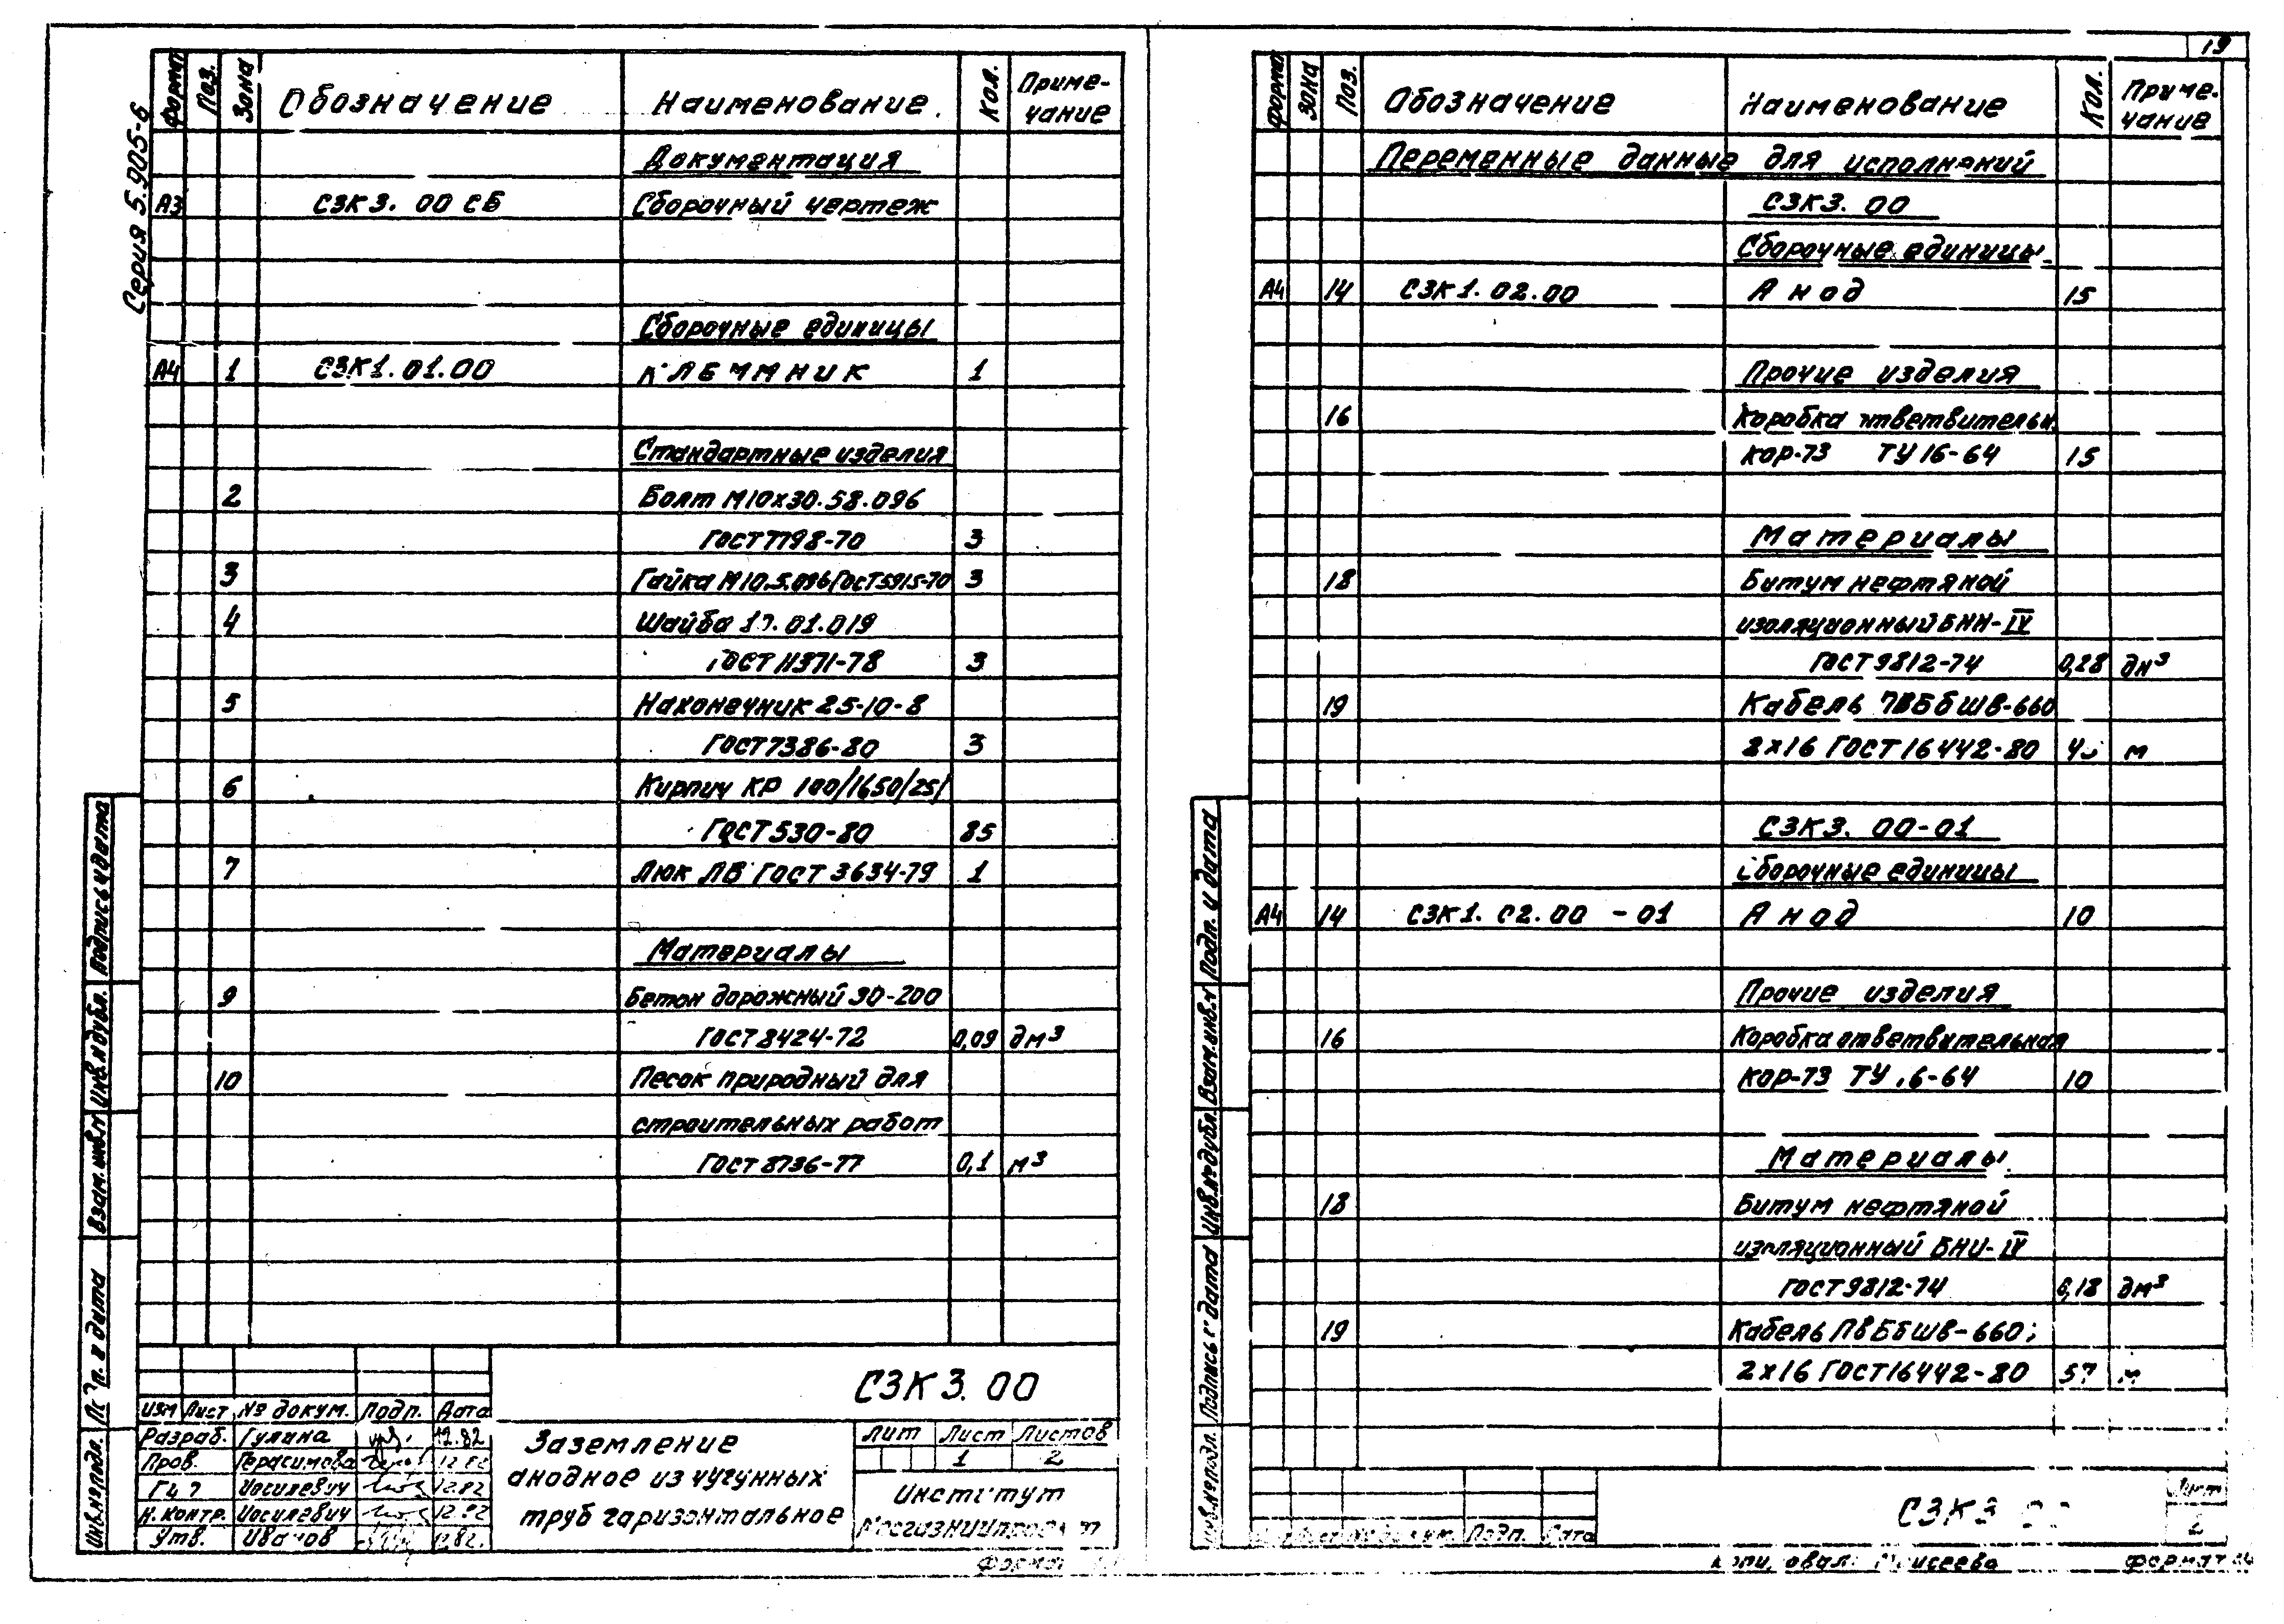 19
Серия 5.905-6
Формат Поз. Зона Обозначение Наименование Кол. Приме-
чание
Документация
А3 СЗК3. 00 СБ Сборочный чертеж
Сборочные единицы
А4 1 СЗК1. 01. 00 Клеммник 1
Стандартные изделия
2 Болт М10х30.58.096
ГОСТ 7798-70 3
3 Гайка М10.5.096 ГОСТ 5915-70 3
4 Шайба 10.01.019
ГОСТ 11371-78 3
5 Наконечник 25-10-8
ГОСТ 7386-80 3
6 Кирпич КР 100/1650/25/
ГОСТ 530-80 85
7 Люк ЛВ ГОСТ 3634-79 1
Материалы
9 Бетон дорожный 90-200
ГОСТ 8424-72 0,09 дм³
10 Песок природный для
строительных работ
ГОСТ 8736-77 0,1 м³
Инв.№ подл. Подп. и дата Взам. инв.№ Инв.№ дубл. Подпись и дата
СЗК 3. 00
Изм Лист № докум. Подп. Дата
Разраб. Гулина 12.82
Пров. Герасимова 12.82
ГИП Иосилевич 12.82
Н. контр. Иосилевич 12.82
Утв. Иванов 12.82.
Заземление
анодное из чугунных
труб горизонтальное
Лит Лист Листов
1 2
Институт
МосгазНИИпроект
Формат
Формат Зона Поз. Обозначение Наименование Кол. Приме-
чание
Переменные данные для исполнений
СЗК3. 00
Сборочные единицы
А4 14 СЗК1. 02. 00 Анод 15
Прочие изделия
16 Коробка ответвительн.
кор-73 ТУ 16-64 15
Материалы
18 Битум нефтяной
изоляционный БНИ-IV
ГОСТ 9812-74 0,28 дм³
19 Кабель ПвБбШв-660
2х16 ГОСТ 16442-80 м
СЗК3. 00-01
Сборочные единицы
А4 14 СЗК1. 02. 00 -01 Анод 10
Прочие изделия
16 Коробка ответвительная
кор-73 ТУ 16-64 10
Материалы
18 Битум нефтяной
изоляционный БНИ-IV
ГОСТ 9812-74 0,18 дм³
19 Кабель ПвБбШв-660;
2х16 ГОСТ 16442-80 57 м
Инв.№ подл. Подпись и дата Инв.№ дубл. Взам. инв.№ Подп. и дата
Изм Лист № докум. Подп. Дата
СЗК3 00
Лист
2
Копировал: Моисеева Формат А4